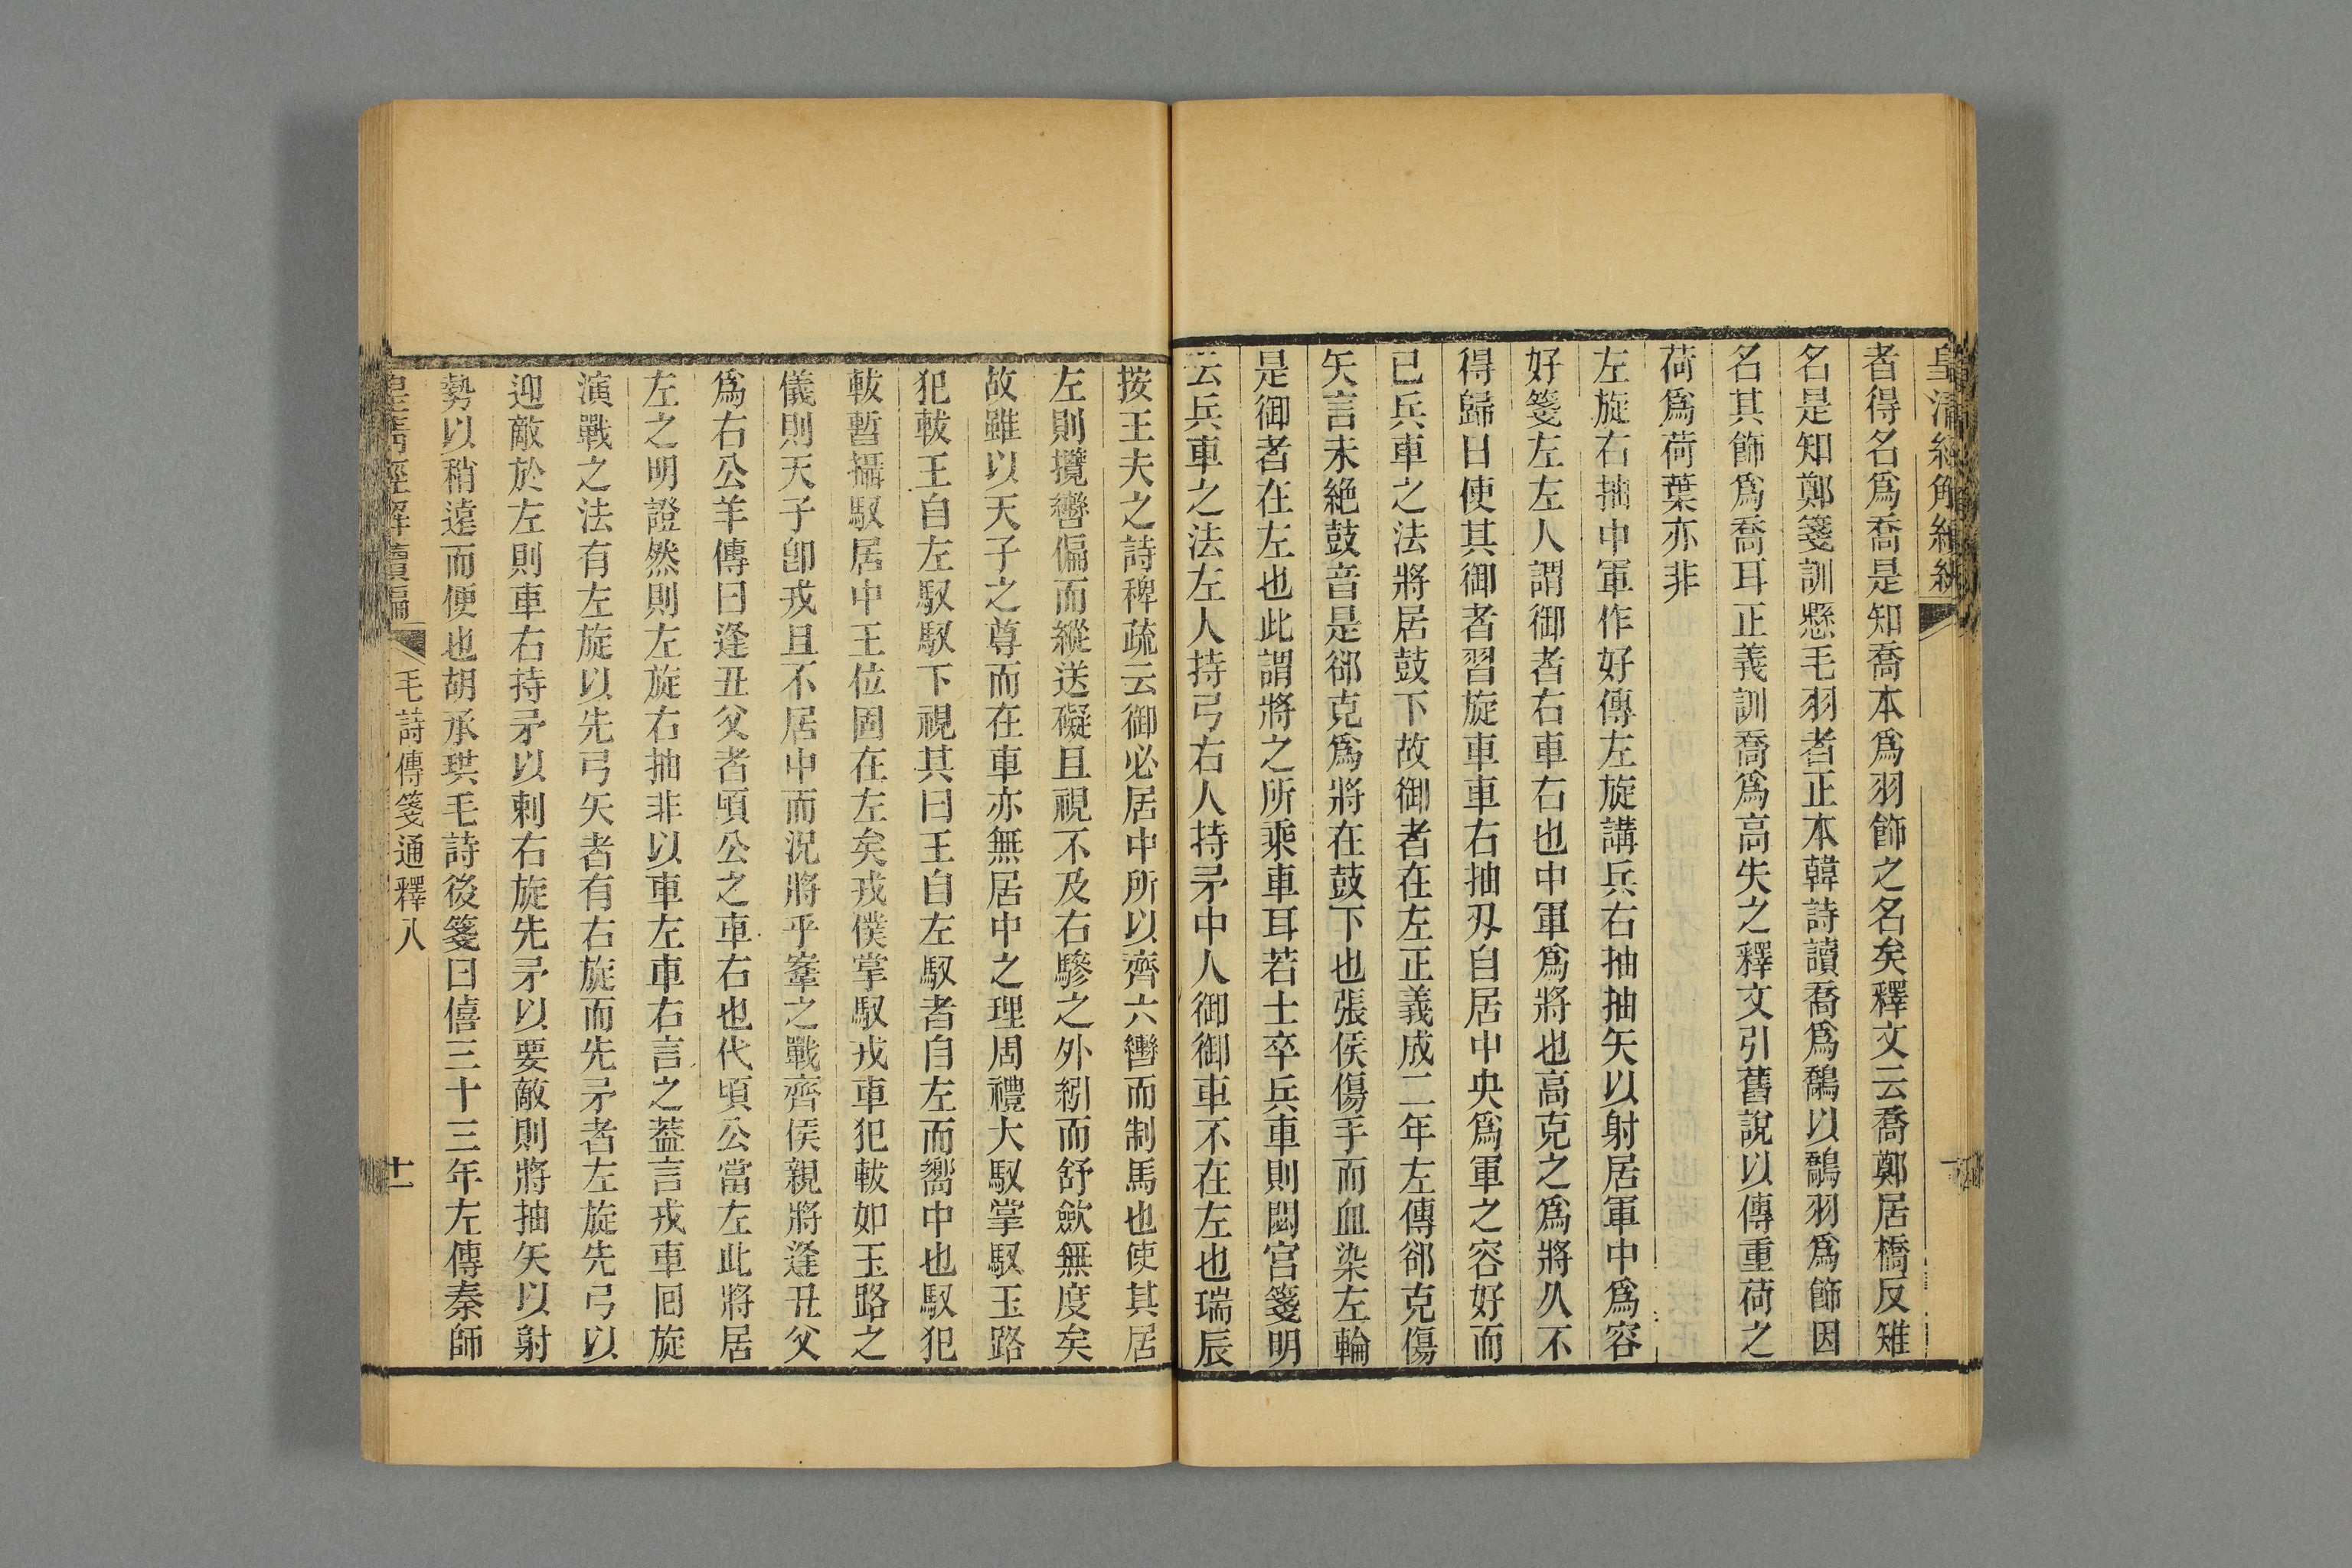 皇清經解續編
者得名爲喬是知喬本爲羽飾之名矣釋文云喬鄭居橋反雉
名是知鄭箋訓懸毛羽者正本韓詩讀喬爲鷮以鷮羽爲飾因
名其飾爲喬耳正義訓喬爲高失之釋文引舊說以傳重荷之
荷爲荷葉亦非
左旋右抽中軍作好傳左旋講兵右抽抽矢以射居軍中爲容
好箋左左人謂御者右車右也中軍爲將也高克之爲將久不
得歸日使其御者習旋車車右抽刃自居中央爲軍之容好而
已兵車之法將居鼓下故御者在左正義成二年左傳郤克傷
矢言未絶鼓音是郤克爲將在鼓下也張侯傷手而血染左輪
是御者在左也此謂將之所乘車耳若士卒兵車則閟宫箋明
云兵車之法左人持弓右人持矛中人御御車不在左也瑞辰
按王夫之詩稗疏云御必居中所以齊六轡而制馬也使其居
左則攬轡偏而縱送礙且視不及右驂之外紖而舒斂無度矣
故雖以天子之尊而在車亦無居中之理周禮大馭掌馭玉路
犯軷王自左馭馭下視其曰王自左馭者自左而嚮中也馭犯
軷暫攝馭居中王位固在左矣戎僕掌馭戎車犯軷如玉路之
儀則天子卽戎且不居中而況將乎鞌之戰齊侯親將逢丑父
爲右公羊傳曰逢丑父者頃公之車右也代頃公當左此將居
左之明證然則左旋右抽非以車左車右言之蓋言戎車囘旋
演戰之法有左旋以先弓矢者有右旋而先矛者左旋先弓以
迎敵於左則車右持矛以刺右旋先矛以要敵則將抽矢以射
勢以稍遠而便也胡承珙毛詩後箋曰僖三十三年左傳秦師
皇清經解續編 毛詩傳箋通釋八 十一